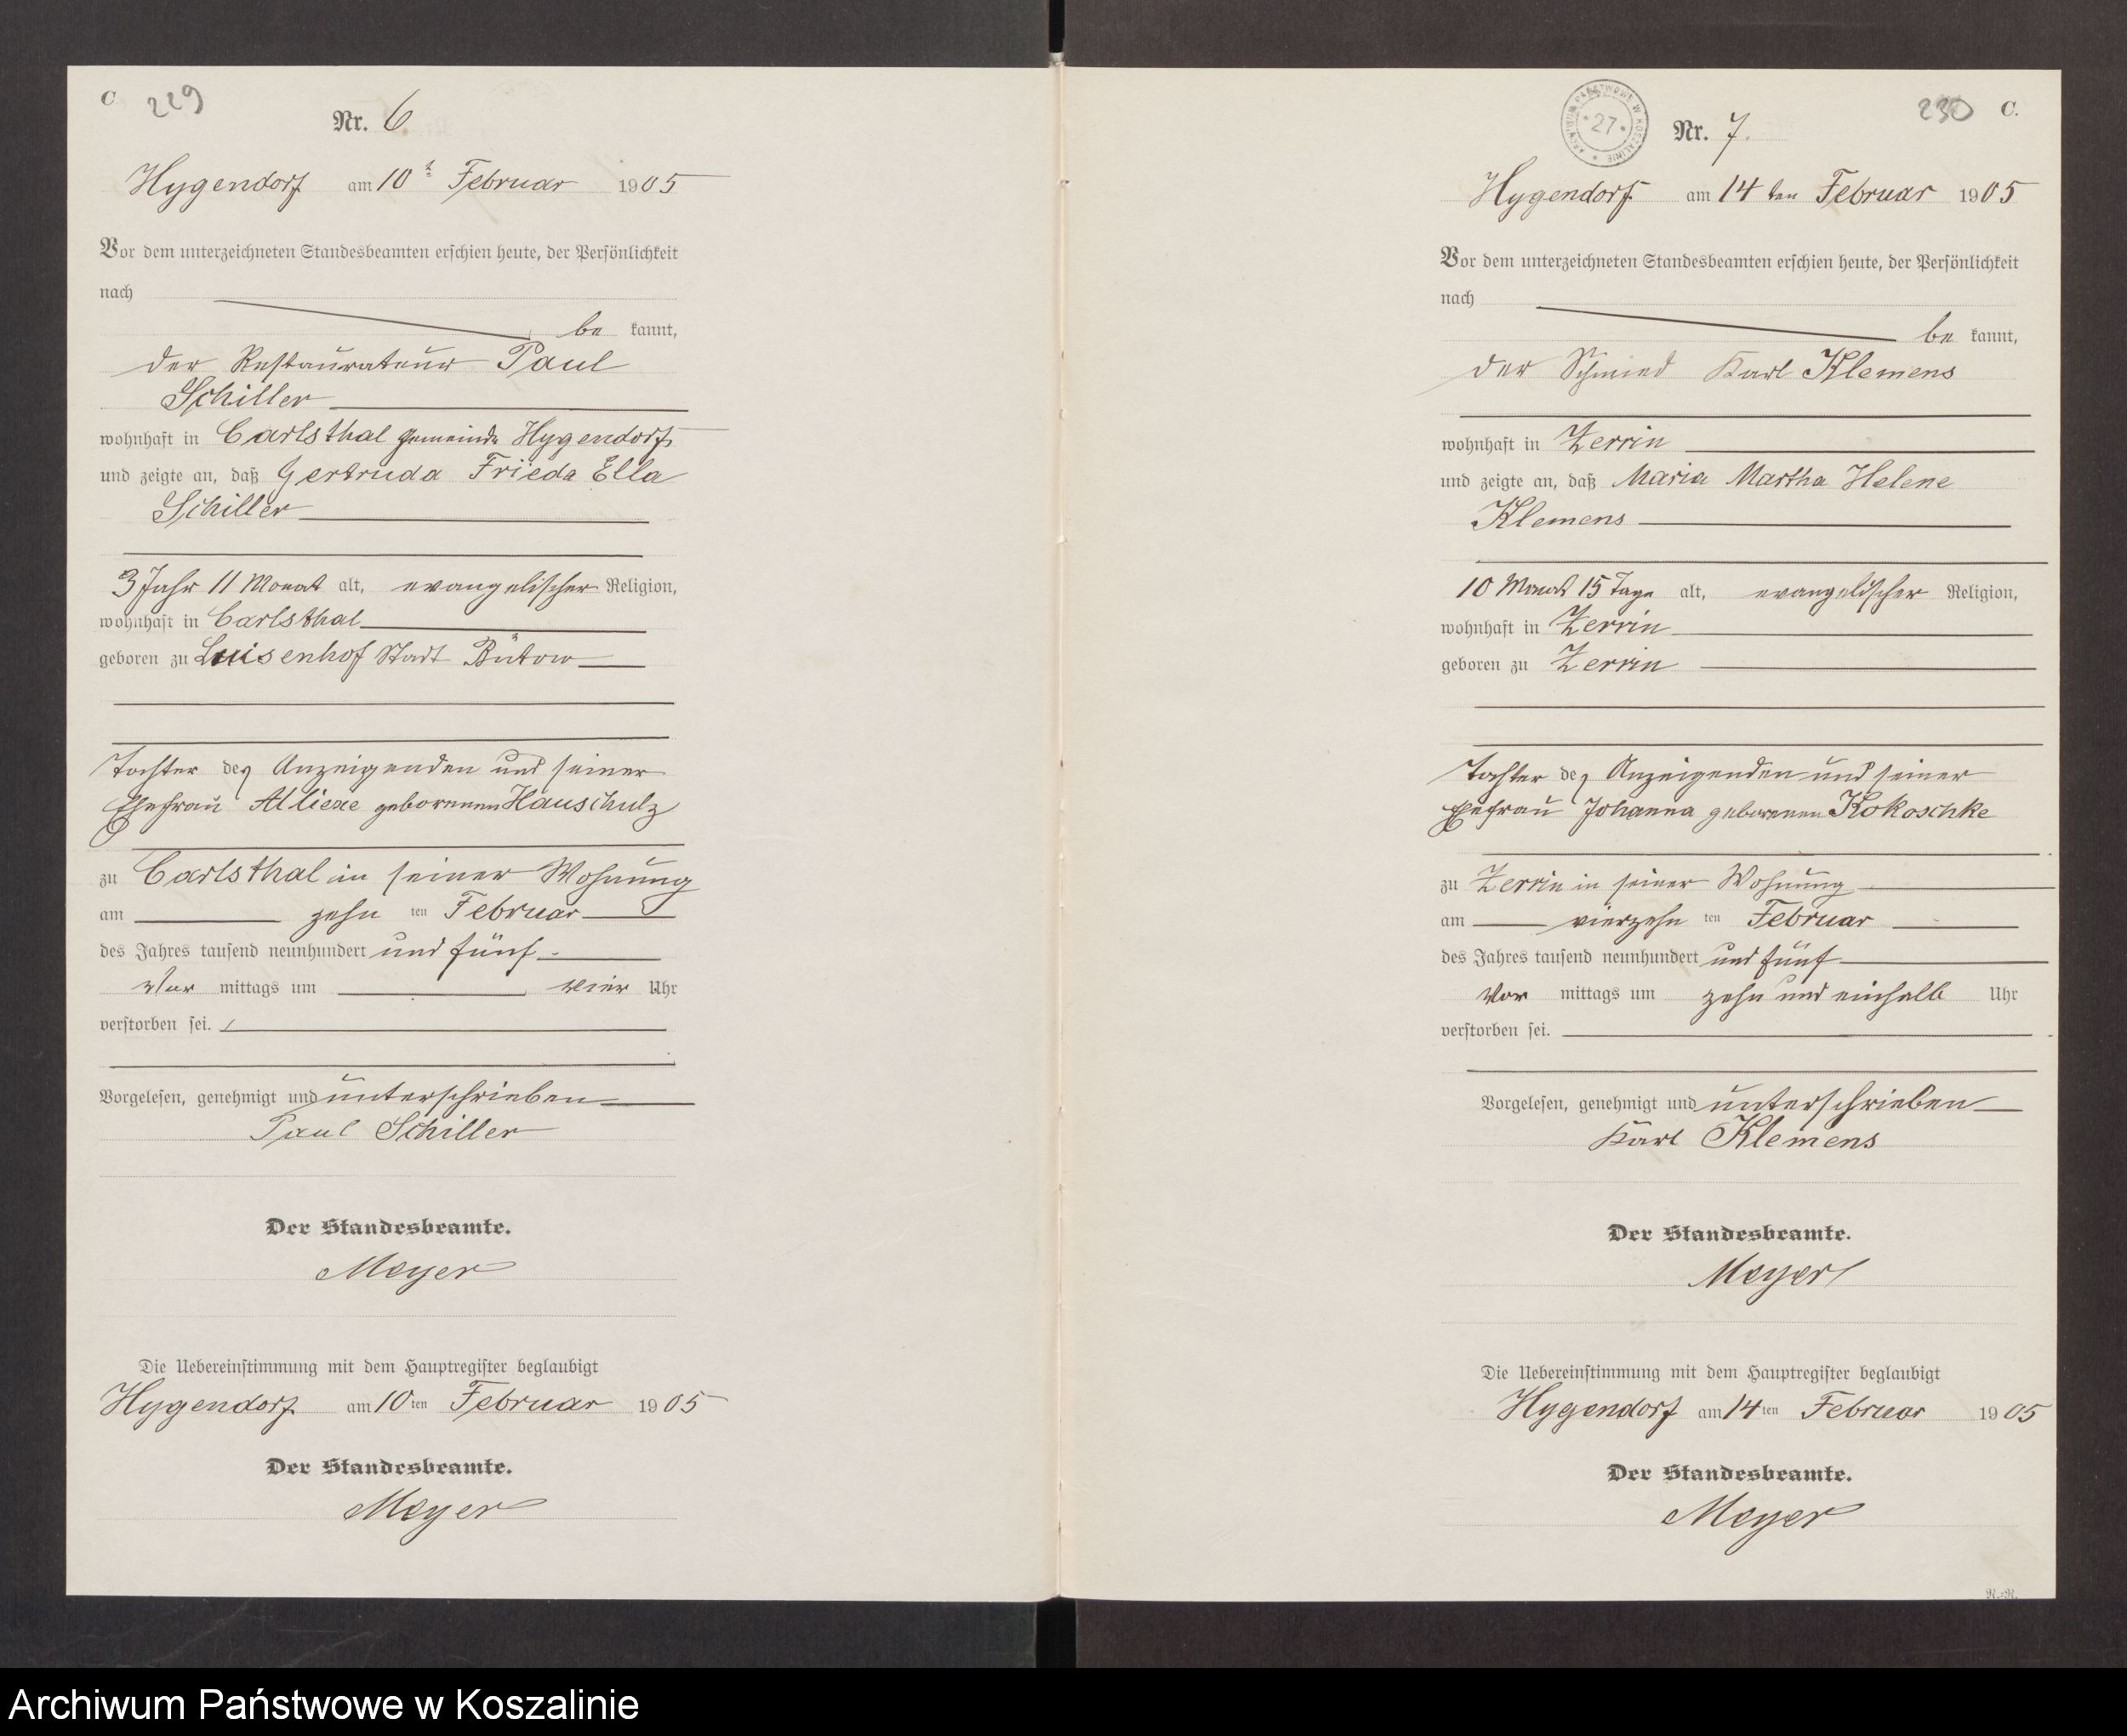 C 229
Nr. 6
Hygendorf am 10 t Februar 1905
Vor dem unterzeichneten Standesbeamten erschien heute, der Persönlichkeit
nach
be kannt,
der Restaurateur Paul
Schiller
wohnhaft in Carlsthal Gemeinde Hygendorf
und zeigte an, daß Gertruda Frieda Ella
Schiller
3 Jahr 11 Monat alt, evangelischer Religion,
wohnhaft in Carlsthal
geboren zu Luisenhof Stadt Bütow
Tochter des Anzeigenden und seiner
Ehefrau geborenen Hauschulz
zu Carlsthal in seiner Wohnung
am zehn ten Februar
des Jahres tausend neunhundert und fünf
Vor mittags um vier Uhr
verstorben sei.
Vorgelesen, genehmigt und unterschrieben
Paul Schiller
Der Standesbeamte.
Meyer
Die Uebereinstimmung mit dem Hauptregister beglaubigt
Hygendorf am 10 ten Februar 1905
Der Standesbeamte.
Meyer
ARCHIWUM PAŃSTWOWE W KOSZALINIE * 27 *
230 C.
Nr. 7.
Hygendorf am 14 ten Februar 1905
Vor dem unterzeichneten Standesbeamten erschien heute, der Persönlichkeit
nach
be kannt,
der Schmied Karl Klemens
wohnhaft in Zerrin
und zeigte an, daß Maria Martha Helene
Klemens
10 Monat 15 Tage alt, evangelischer Religion,
wohnhaft in Zerrin
geboren zu Zerrin
Tochter des Anzeigenden und seiner
Ehefrau Johanna geborenen Kokoschke
zu Zerrin in seiner Wohnung
am vierzehn ten Februar
des Jahres tausend neunhundert und fünf
Vor mittags um zehn und einhalb Uhr
verstorben sei.
Vorgelesen, genehmigt und unterschrieben
Karl Klemens
Der Standesbeamte.
Meyer
Die Uebereinstimmung mit dem Hauptregister beglaubigt
Hygendorf am 14 ten Februar 1905
Der Standesbeamte.
Meyer
R.=R.
Archiwum Państwowe w Koszalinie